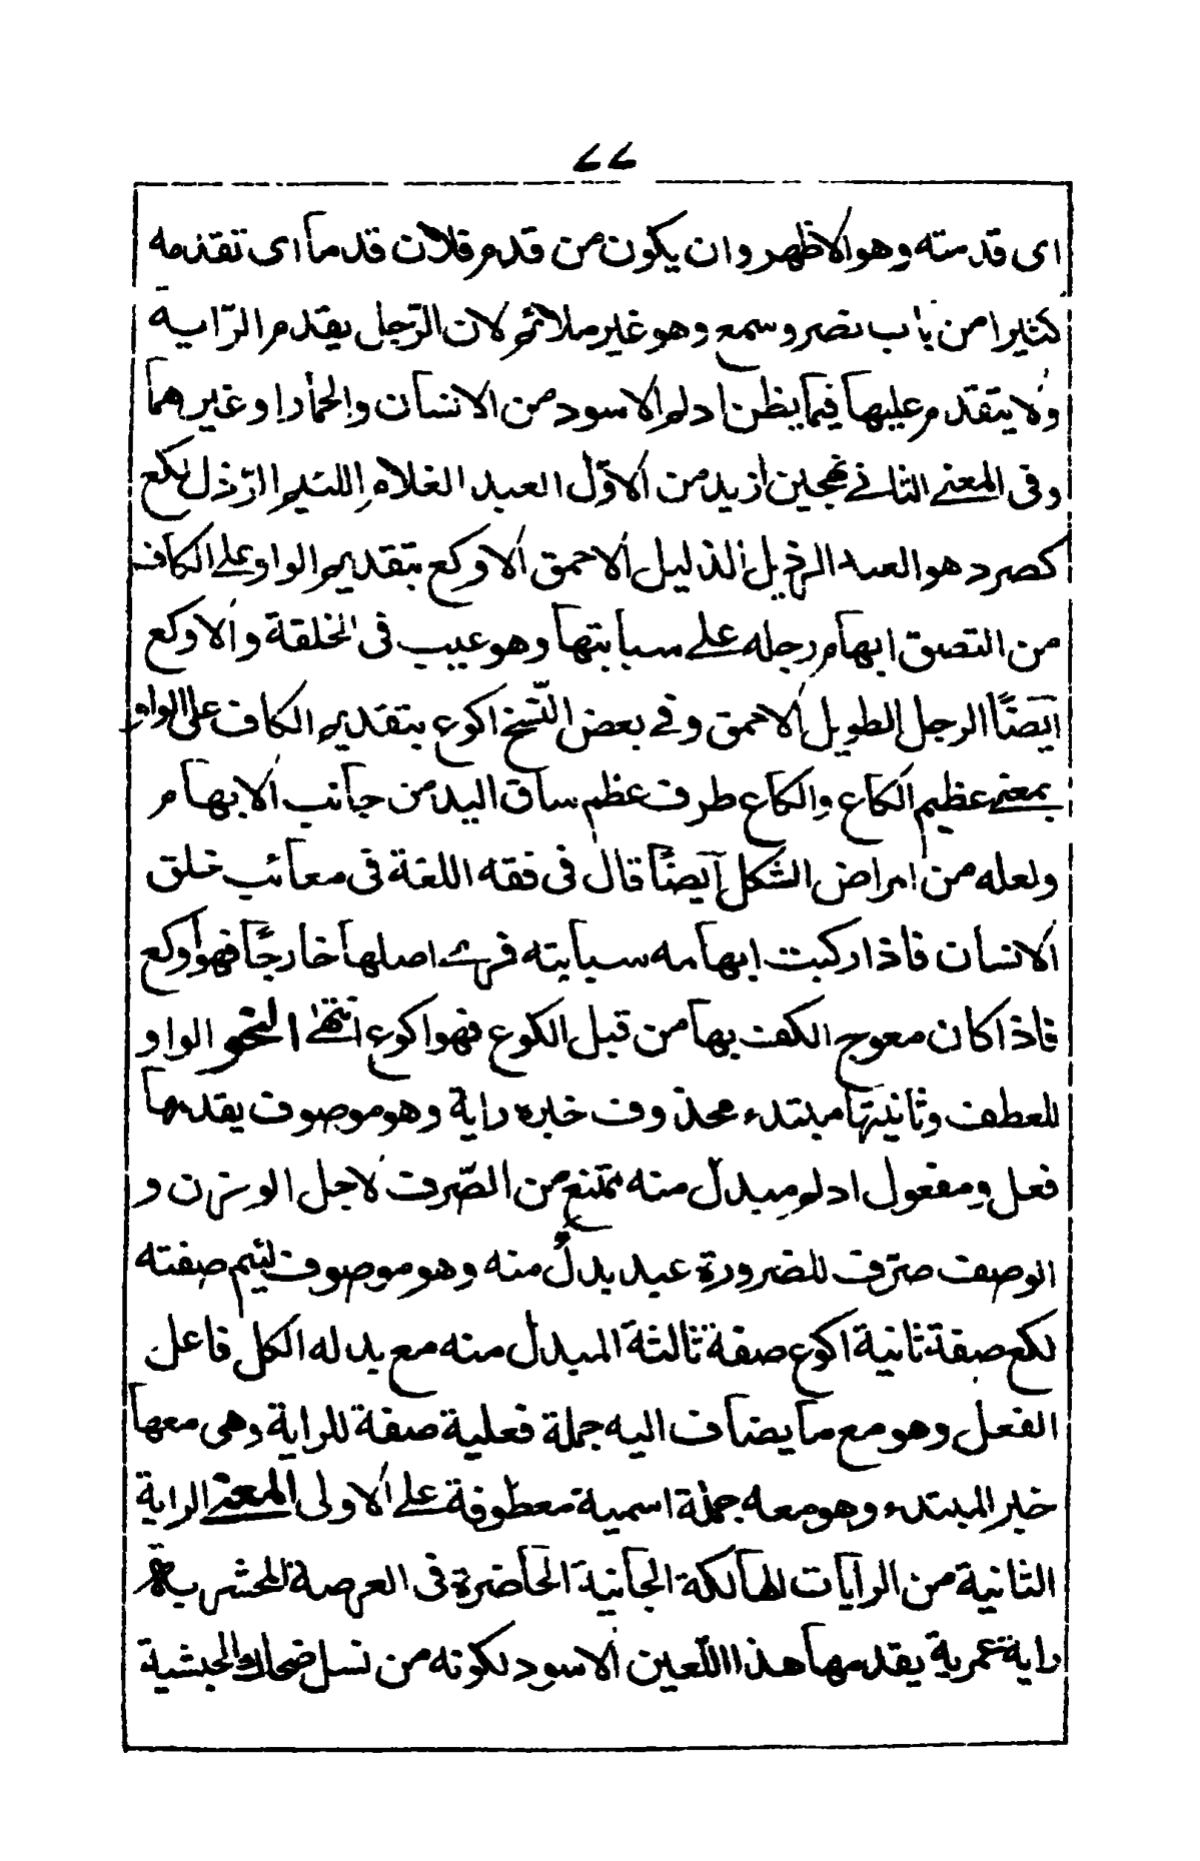 ٧٧
اى قدمته وهو الاظهر وان يكون من قدم فلان قدما اى تقدمه
كثيرا من باب نصر وسمع وهو غير ملائم لان الرّجل يقدم الرّاية
ولا يتقدم عليها فيما يظن ادلم الاسود من الانسان والحمار او غيرهما
وفى المعنى الثانى تهجين ازيد من الاوّل العبد الغلام اللئيم الرّذل لكع
كصرد هو العبد الرذيل الذليل الاحمق الاوكع بتقديم الواو على الكاف
من التصق ابهام رجله على سبابتها وهو عيب فى الخلقة والاوكع
ايضًا الرجل الطويل الاحمق وفى بعض النّسخ اكوع بتقديم الكاف على الواو
بمعنى عظيم الكاع والكاع طرف عظم ساق اليد من جانب الابهام
ولعله من امراض الشكل ايضًا قال فى فقه اللغة فى معائب خلق
الانسان فاذا ركبت ابهامه سبابته فرى اصلها خارجًا فهو اوكع
فاذا كان معوج الكف بها من قبل الكوع فهو اكوع انتهى النحو الواو
للعطف وثانيتها مبتدء محذوف خبره راية وهو موصوف يقدمها
فعل ومفعول ادلم مبدل منه ممتنع من الصّرف لاجل الوزن و
الوصف صرّف للضرورة عبد بدلٌ منه وهو موصوف لئيم صفته
لكع صفة ثانية اكوع صفة ثالثة المبدل منه مع بدله الكل فاعل
الفعل وهو مع ما يضاف اليه جملة فعلية صفة للراية وهى معها
خبر المبتدء وهو معه جملة اسمية معطوفة على الاولى المعنى الراية
الثانية من الرايات الهالكة الجانية الحاضرة فى العرصة المحشرية
راية عمرية يقدمها هذا اللعين الاسود لكونه من نسل ضحاك الحبشية